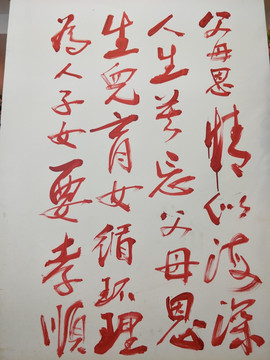 父母恩情似海深
人生莫忘父母恩
生儿育女循环理
為人子女要孝順